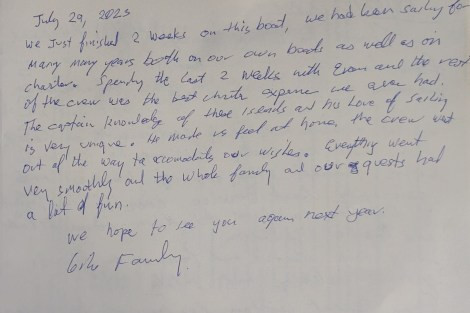 July 29, 2023
We Just finished 2 weeks on this boat, we had been sailing for
many many years both on our own boats as well as on
charter. Spending the last 2 weeks with and the rest
of the crew was the best charter we ever had.
The captain knowledge of these Islands and his Love of Sailing
is very unique. He made us feel at home, the crew went
out of the way to our wishes. Everything went
very smoothly and the whole family and our guests had
a lot of fun.
We hope to see you again next year.
Family